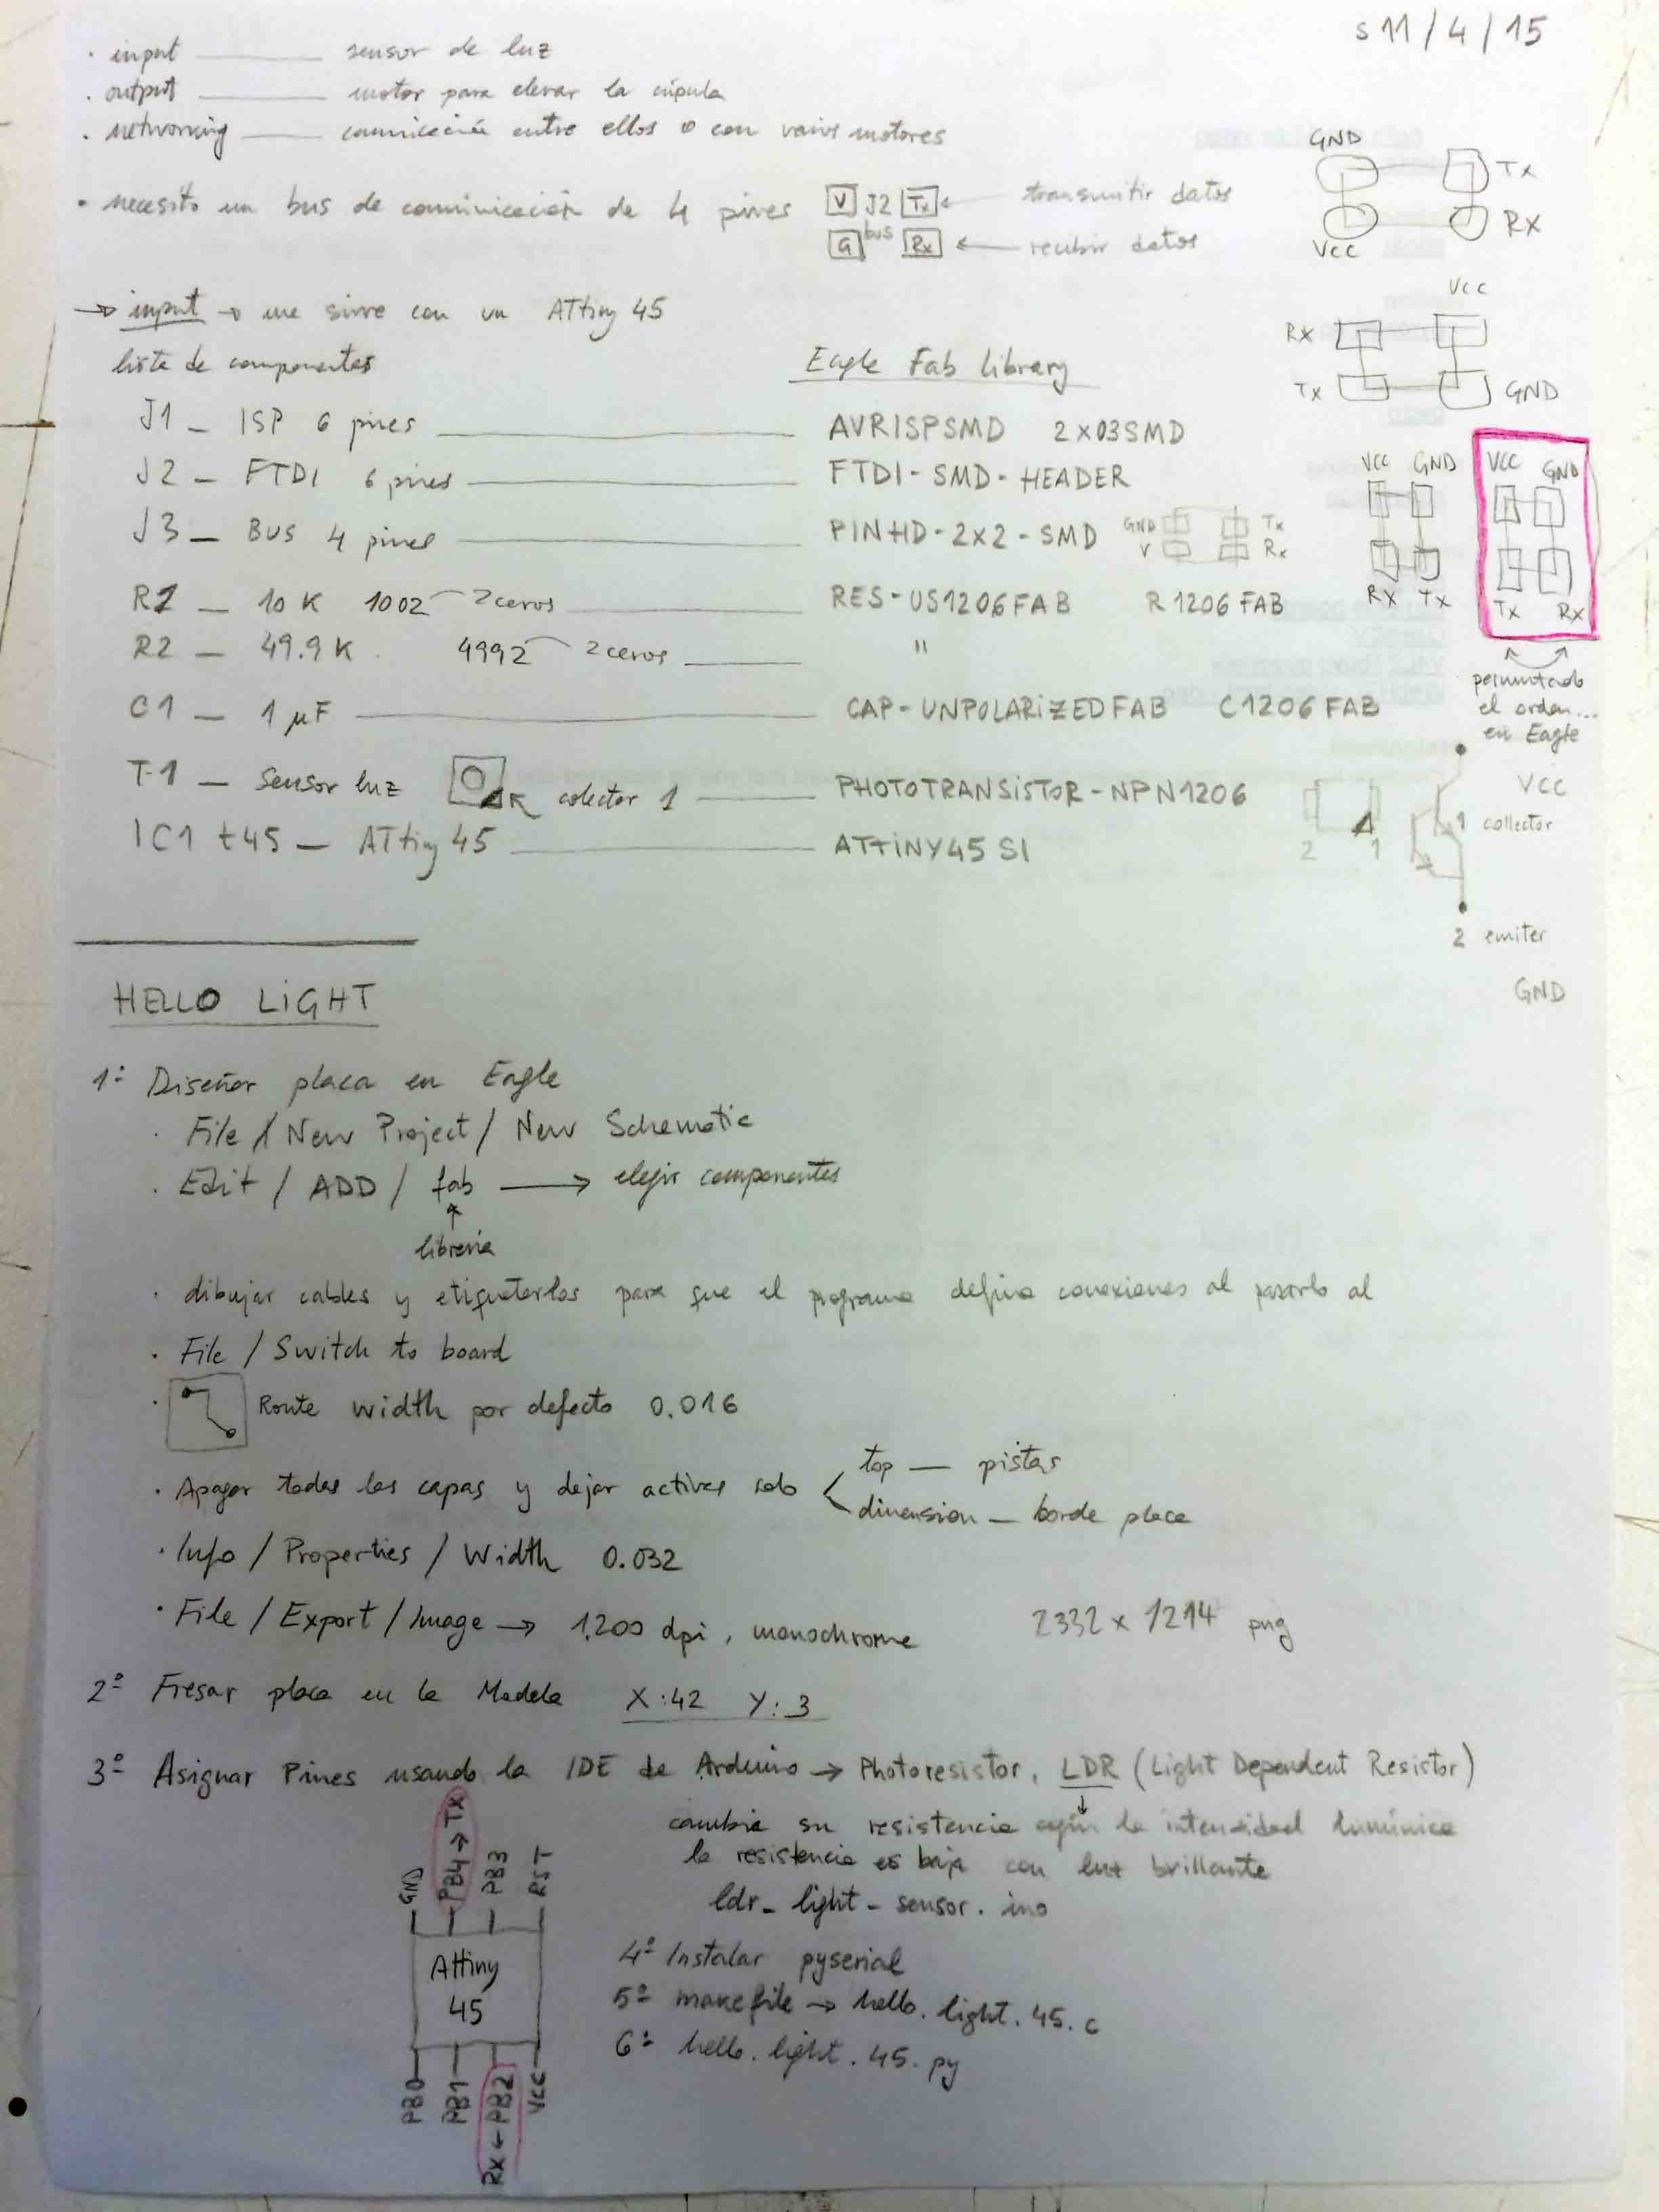 s 11/4/15
· input ——— sensor de luz
· output ——— motor para elevar la cúpula
· networking ——— comunicación entre ellos o con varios motores
· necesito un bus de comunicación de 4 pines
V J2 Tx ← transmitir datos
G bus Rx ← recibir datos
GND Tx
Vcc Rx
→ input → me sirve con un ATtiny 45
Vcc
Rx
Tx GND
lista de componentes
Eagle Fab Library
J1 — ISP 6 pines ——— AVRISPSMD 2x03SMD
J2 — FTDI 6 pines ——— FTDI-SMD-HEADER
J3 — BUS 4 pines ——— PINHD-2x2-SMD
GND Tx
V Rx
VCC GND
Rx Tx
VCC GND
Tx Rx
permutado
el orden...
en Eagle
R1 — 10K 1002 2ceros ——— RES-US1206FAB R1206FAB
R2 — 49.9K 4992 2ceros ——— "
C1 — 1 µF ——— CAP-UNPOLARIZEDFAB C1206FAB
T1 — Sensor luz colector 1 ——— PHOTOTRANSISTOR-NPN1206
IC1 t45 — ATtiny 45 ——— ATTINY45SI
2 1
VCC
1 collector
2 emiter
GND
HELLO LIGHT
1º Diseñar placa en Eagle
· File / New Project / New Schematic
· Edit / ADD / fab → elegir componentes
↑
librería
· dibujar cables y etiquetarlos para que el programa defina conexiones al pasarlo al
· File / Switch to board
· Route width por defecto 0.016
· Apagar todas las capas y dejar activas solo
top — pistas
dimension — borde placa
· Info / Properties / Width 0.032
· File / Export / Image → 1200 dpi, monochrome 2332 x 1214 png
2º Fresar placa en la Modela X:42 Y:3
3º Asignar Pines usando la IDE de Arduino → Photoresistor, LDR (Light Dependent Resistor)
↓
cambia su resistencia según la intensidad lumínica
la resistencia es baja con luz brillante
ldr_light_sensor.ino
GND PB4→TX PB3 RST
Attiny
45
PB0 PB1 Rx←PB2 VCC
4º Instalar pyserial
5º makefile → hello.light.45.c
6º hello.light.45.py